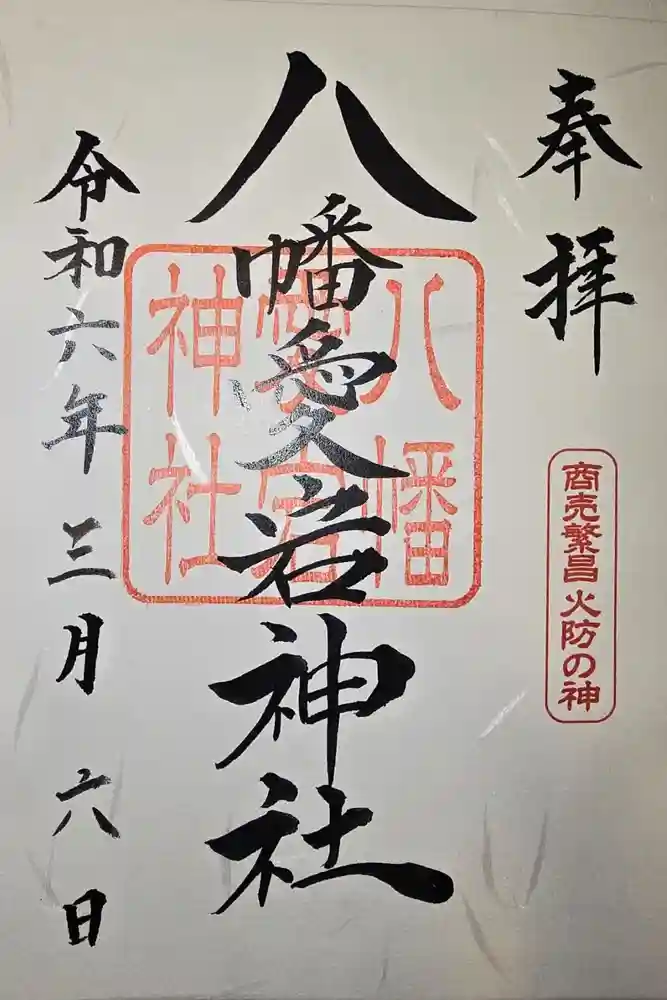 奉拝
商売繁昌 火防の神
八幡愛岩神社
八幡愛宕神社
令和六年 三月 六日